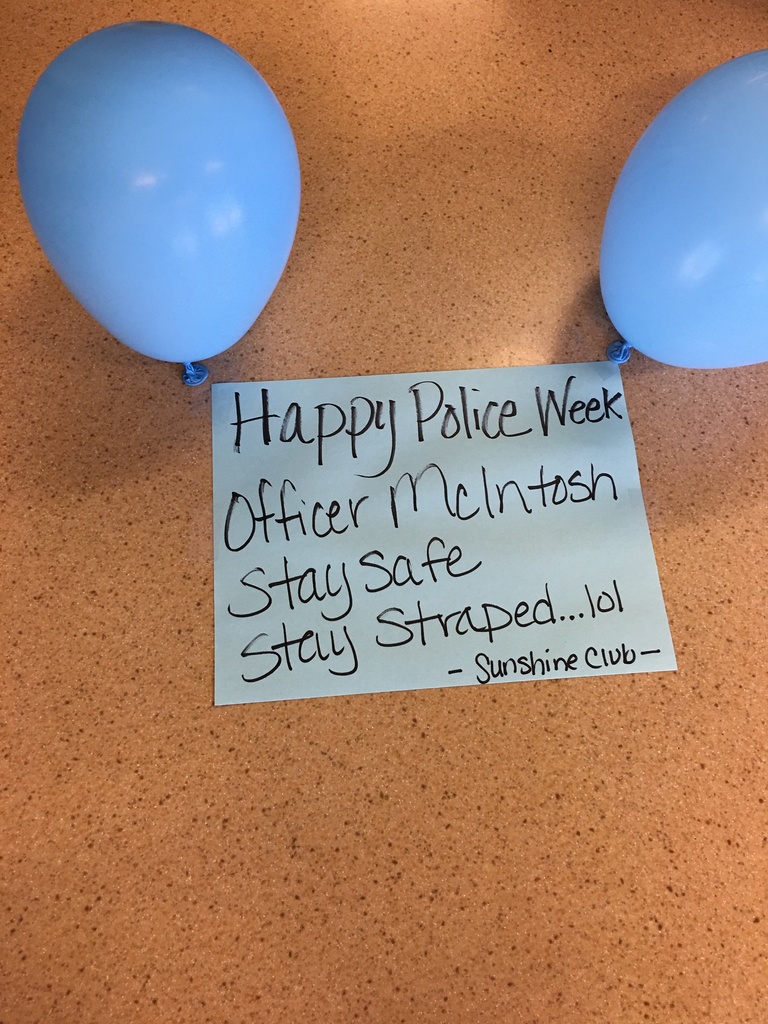 Happy Police Week
Officer McIntosh
Stay Safe
Stay Straped...lol
- Sunshine Club -